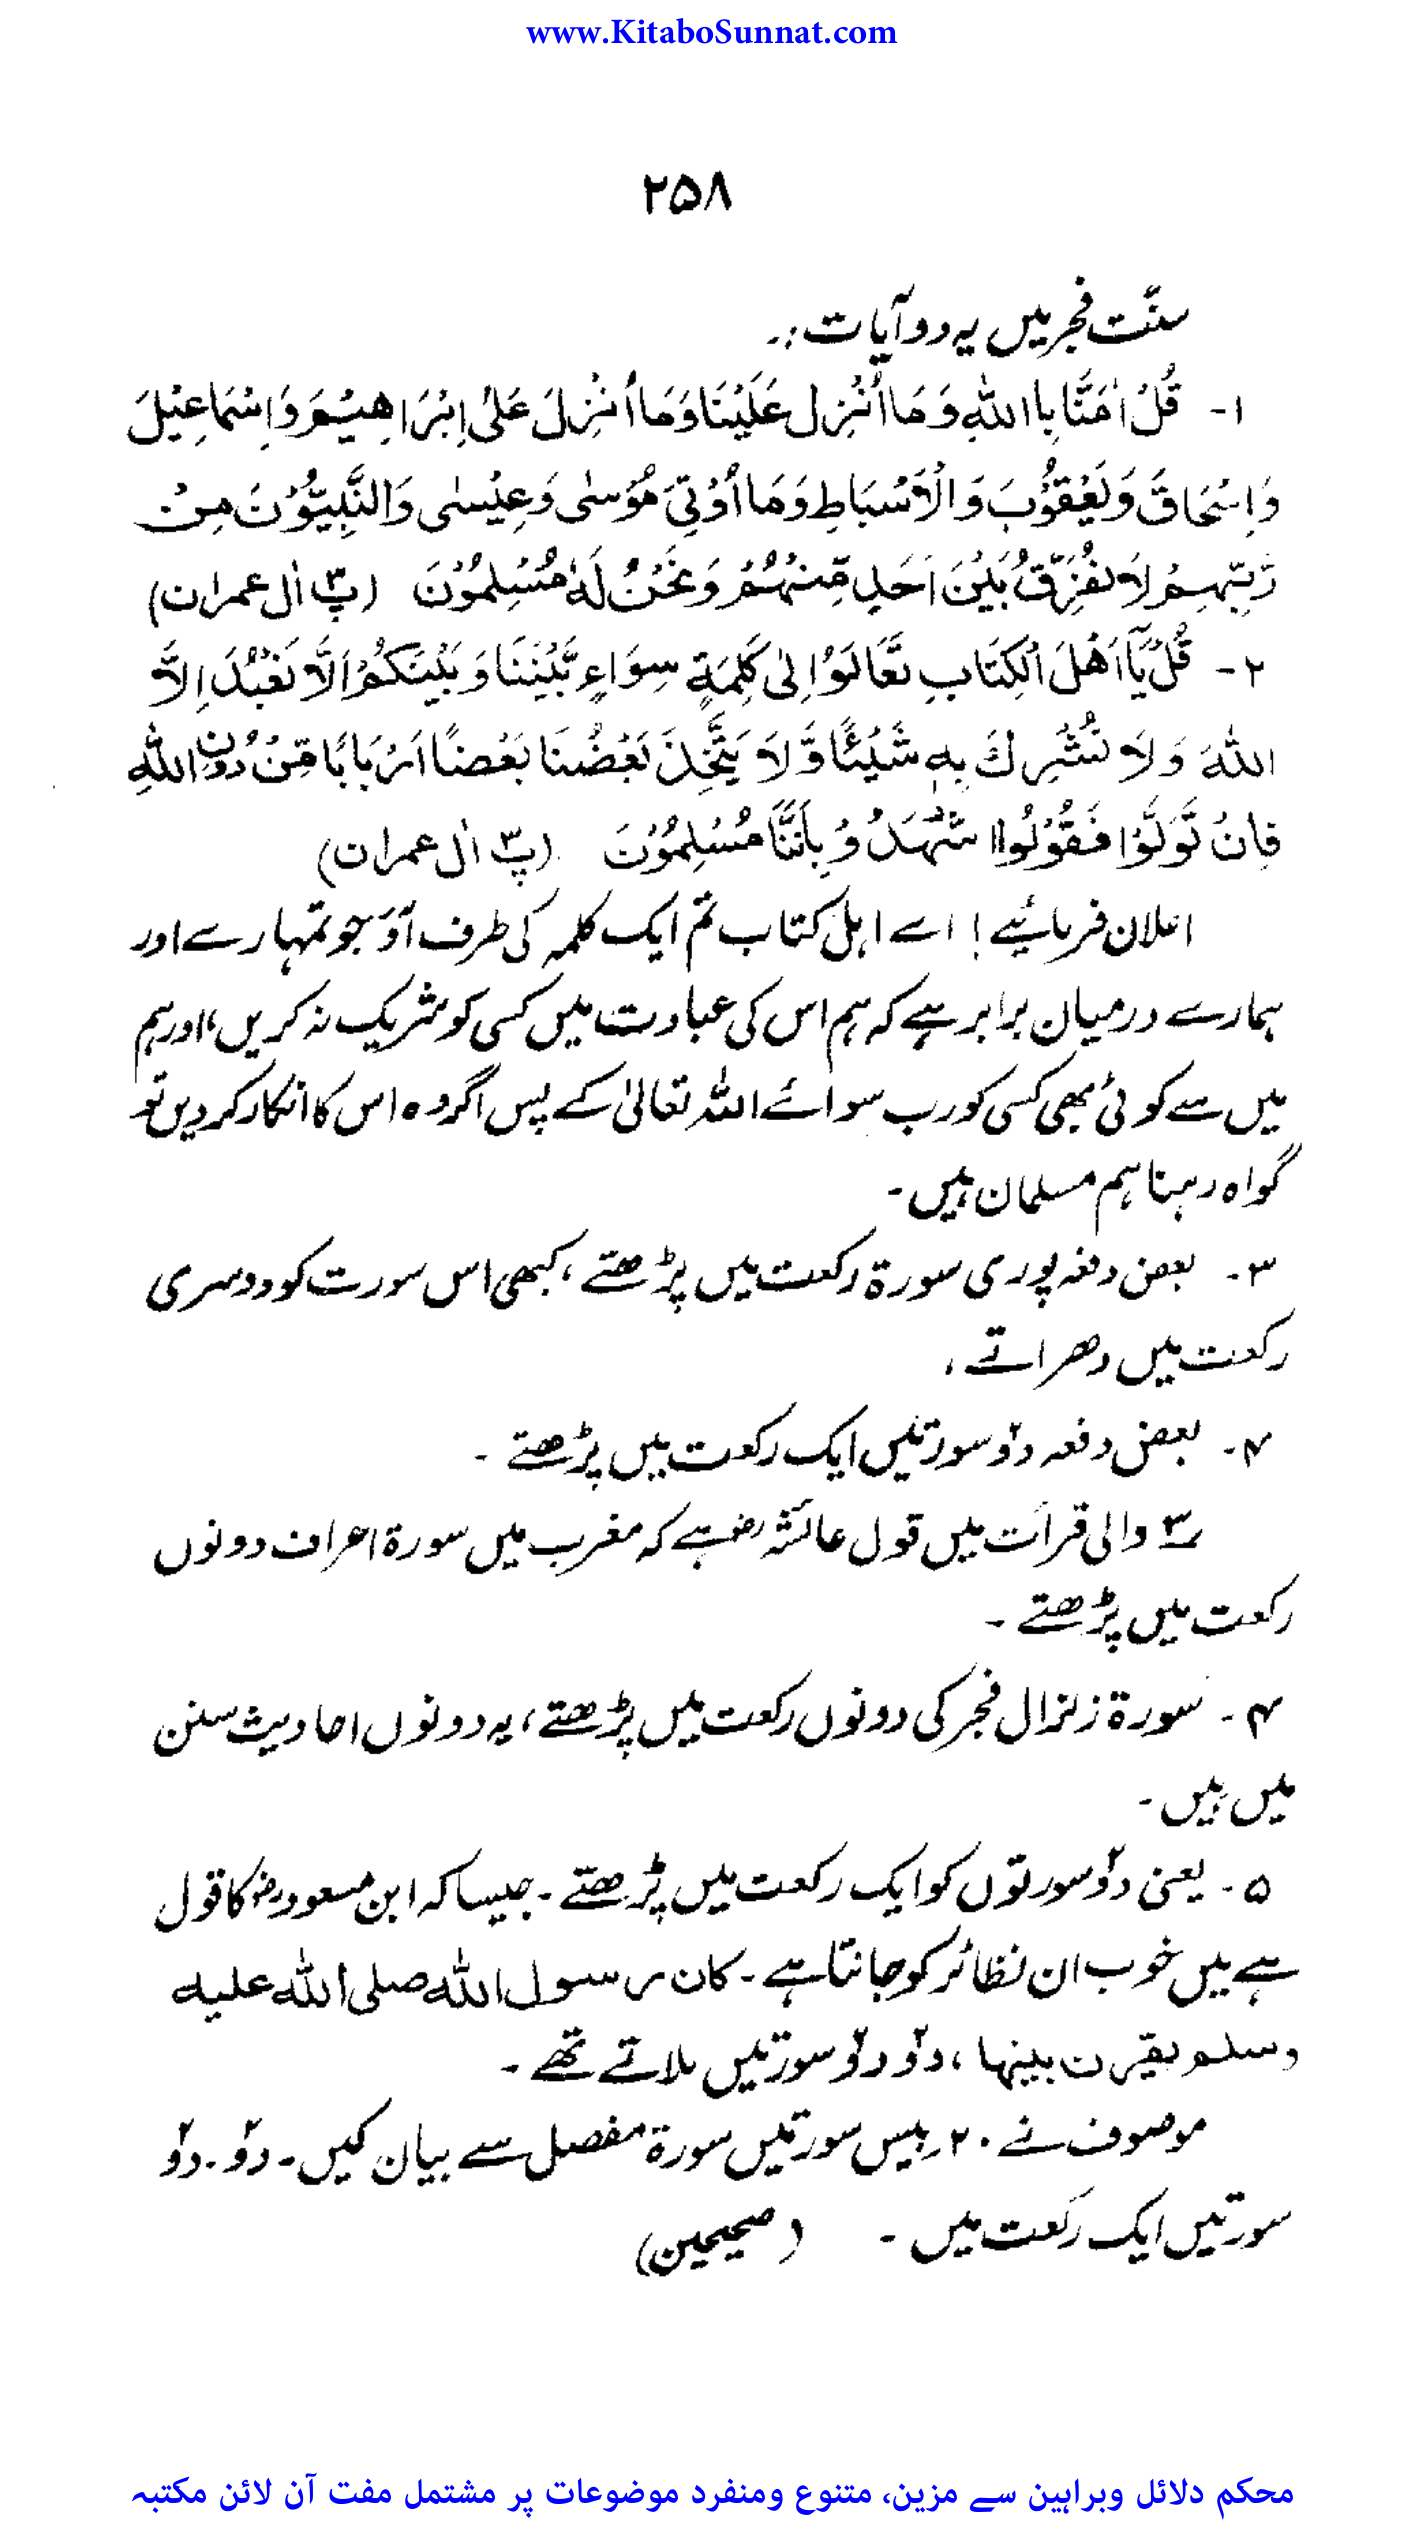 www.KitaboSunnat.com
۲۵۸
سنّت فجر میں یہ دو آیات :۔
۱- قُلْ اٰمَنَّا بِااللّٰهِ وَمَا اُنْزِل عَلَيْنَا وَمَا اُنْزِلَ عَلیٰ اِبْرَاهِيْمَ وَاِسْمَاعِيْلَ
وَاِسْحَاقَ وَيَعْقُوْبَ وَالْاَسْبَاطِ وَمَا اُوْتِیَ مُوْسٰی وَعِيْسٰی وَالنَّبِيُّوْنَ مِنْ
رَّبِّهِمْ لَا نُفَرِّقُ بَيْنَ اَحَدٍ مِّنْهُمْ وَنَحْنُ لَهٗ مُسْلِمُوْنَ (پ۳ اٰل عمران)
۲- قُلْ يٰٓا اَهْلَ الْكِتَابِ تَعَالَوْا اِلیٰ كَلِمَةٍ سِوَاءٍ بَيْنَنَا وَبَيْنَكُمْ اَلَّا نَعْبُدَ اِلَّا
اللّٰهَ وَلَا نُشْرِكَ بِهٖ شَيْئًا وَّلَا يَتَّخِذَ بَعْضُنَا بَعْضًا اَرْبَابًا مِّنْ دُوْنِ اللّٰهِ
فِانْ تَوَلَّوْا فَقُوْلُوا شْهَدُوْ بِاَنَّنَا مُسْلِمُوْنَ (پ۳ اٰل عمران)
اعلان فرمائیے ! اے اہل کتاب تم ایک کلمہ کی طرف آؤ جو تمہارے اور
ہمارے درمیان برابر ہے کہ ہم اس کی عبادت میں کسی کو شریک نہ کریں، اور ہم
میں سے کوئی بھی کسی کو رب سوائے اللہ تعالیٰ کے پس اگر وہ اس کا انکار کر دیں تو
گواہ رہنا ہم مسلمان ہیں -
۳- بعض دفعہ پوری سورۃ رکعت میں پڑھتے ، کبھی اس سورت کو دوسری
رکعت میں دھراتے ،
۴- بعض دفعہ دو سورتیں ایک رکعت میں پڑھتے -
۳ والی قرأت میں قول عائشہؓ ہے کہ مغرب میں سورۃ اعراف دونوں
رکعت میں پڑھتے -
۴- سورۃ زلزال فجر کی دونوں رکعت میں پڑھتے ، یہ دونوں احادیث سنن
میں ہیں -
۵- یعنی دو سورتوں کو ایک رکعت میں پڑھتے - جیسا کہ ابن مسعودؓ کا قول
ہے میں خوب ان نظائر کو جانتا ہے - کان رسول اللّٰہ صلی اللّٰہ علیہ
وسلم یقرن بینھا ، دو دو سورتیں ملاتے تھے -
موصوف نے ۲۰ بیس سورتیں سورۃ مفصل سے بیان کیں - دو - دو
سورتیں ایک رکعت میں - (صحیحین)
محکم دلائل وبراہین سے مزین، متنوع ومنفرد موضوعات پر مشتمل مفت آن لائن مکتبہ